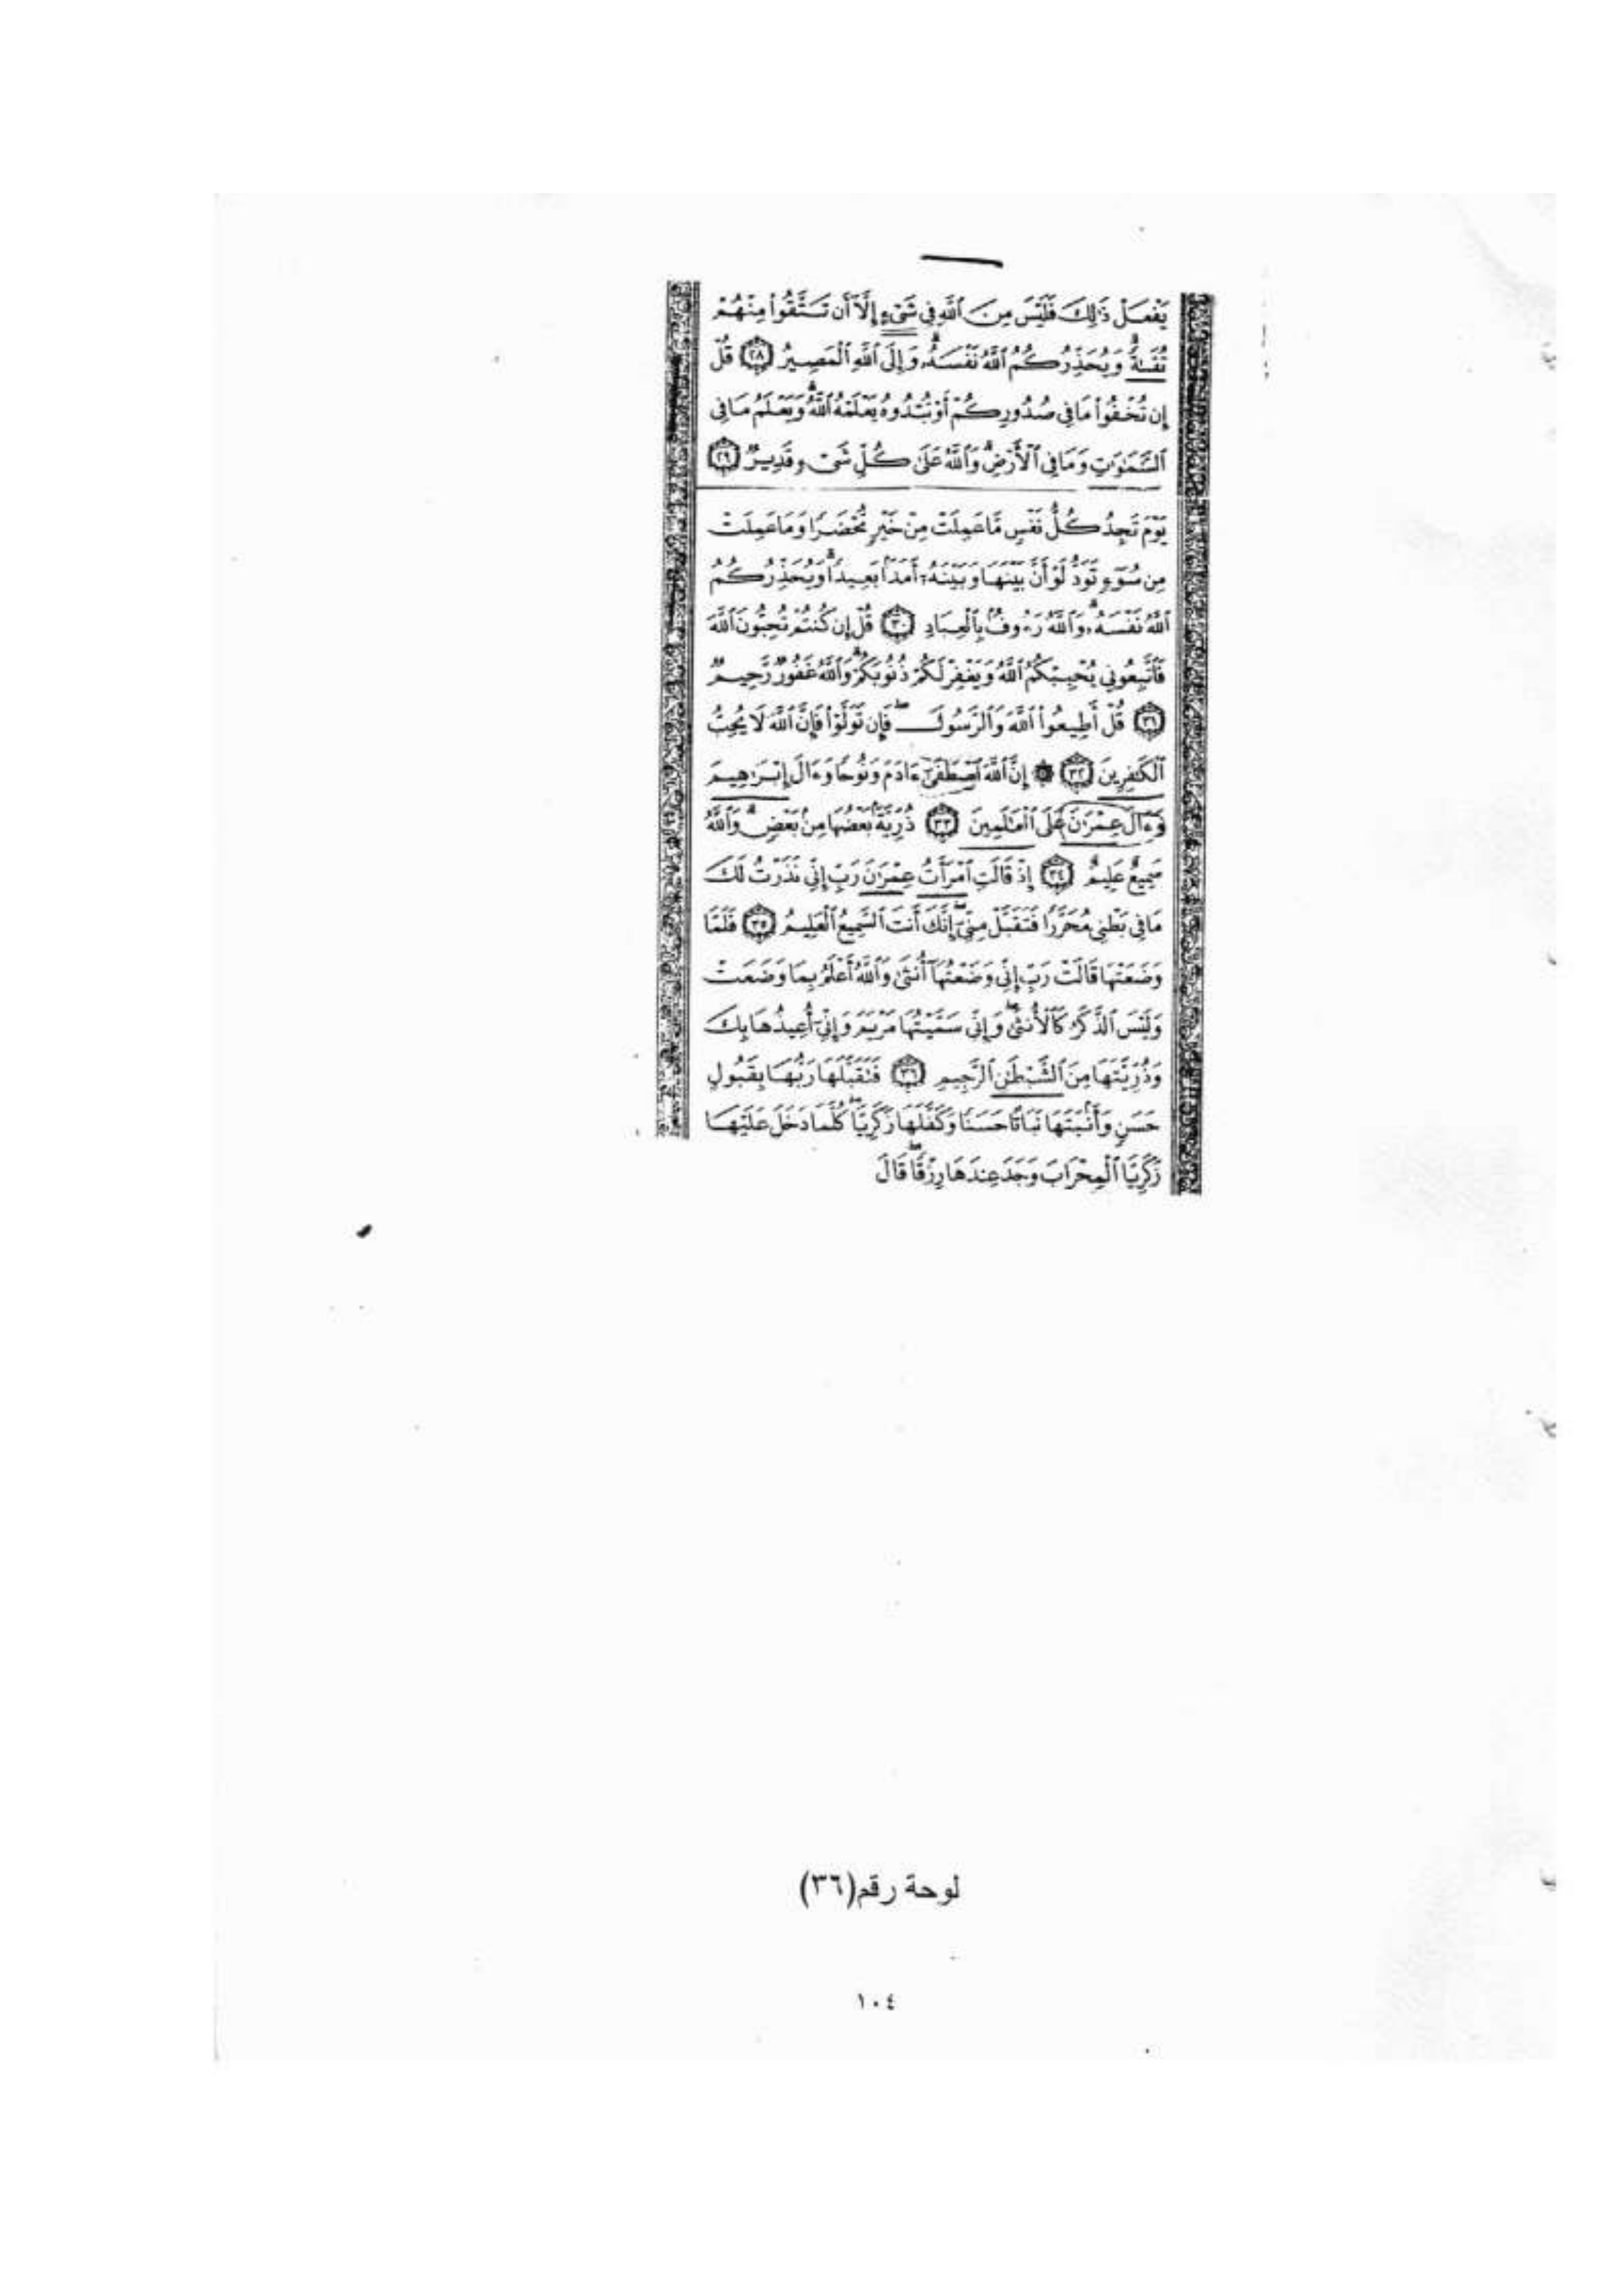 يَفْعَلْ ذَٰلِكَ فَلَيْسَ مِنَ ٱللَّهِ فِي شَىْءٍ إِلَّآ أَن تَتَّقُوا۟ مِنْهُمْ
تُقَىٰةً ۗ وَيُحَذِّرُكُمُ ٱللَّهُ نَفْسَهُۥ ۗ وَإِلَى ٱللَّهِ ٱلْمَصِيرُ ٢٨ قُلْ
إِن تُخْفُوا۟ مَا فِي صُدُورِكُمْ أَوْ تُبْدُوهُ يَعْلَمْهُ ٱللَّهُ ۗ وَيَعْلَمُ مَا فِي
ٱلسَّمَٰوَٰتِ وَمَا فِي ٱلْأَرْضِ ۗ وَٱللَّهُ عَلَىٰ كُلِّ شَىْءٍ قَدِيرٌ ٢٩
يَوْمَ تَجِدُ كُلُّ نَفْسٍ مَّا عَمِلَتْ مِنْ خَيْرٍ مُّحْضَرًا وَمَا عَمِلَتْ
مِن سُوٓءٍ تَوَدُّ لَوْ أَنَّ بَيْنَهَا وَبَيْنَهُۥٓ أَمَدًۢا بَعِيدًا ۗ وَيُحَذِّرُكُمُ
ٱللَّهُ نَفْسَهُۥ ۗ وَٱللَّهُ رَءُوفٌۢ بِٱلْعِبَادِ ٣٠ قُلْ إِن كُنتُمْ تُحِبُّونَ ٱللَّهَ
فَٱتَّبِعُونِي يُحْبِبْكُمُ ٱللَّهُ وَيَغْفِرْ لَكُمْ ذُنُوبَكُمْ ۗ وَٱللَّهُ غَفُورٌ رَّحِيمٌ
٣١ قُلْ أَطِيعُوا۟ ٱللَّهَ وَٱلرَّسُولَ ۖ فَإِن تَوَلَّوْا۟ فَإِنَّ ٱللَّهَ لَا يُحِبُّ
ٱلْكَٰفِرِينَ ٣٢ ۞ إِنَّ ٱللَّهَ ٱصْطَفَىٰٓ ءَادَمَ وَنُوحًا وَءَالَ إِبْرَٰهِيمَ
وَءَالَ عِمْرَٰنَ عَلَى ٱلْعَٰلَمِينَ ٣٣ ذُرِّيَّةًۢ بَعْضُهَا مِنۢ بَعْضٍ ۗ وَٱللَّهُ
سَمِيعٌ عَلِيمٌ ٣٤ إِذْ قَالَتِ ٱمْرَأَتُ عِمْرَٰنَ رَبِّ إِنِّي نَذَرْتُ لَكَ
مَا فِي بَطْنِي مُحَرَّرًا فَتَقَبَّلْ مِنِّيٓ ۖ إِنَّكَ أَنتَ ٱلسَّمِيعُ ٱلْعَلِيمُ ٣٥ فَلَمَّا
وَضَعَتْهَا قَالَتْ رَبِّ إِنِّي وَضَعْتُهَآ أُنثَىٰ وَٱللَّهُ أَعْلَمُ بِمَا وَضَعَتْ
وَلَيْسَ ٱلذَّكَرُ كَٱلْأُنثَىٰ ۖ وَإِنِّي سَمَّيْتُهَا مَرْيَمَ وَإِنِّيٓ أُعِيذُهَا بِكَ
وَذُرِّيَّتَهَا مِنَ ٱلشَّيْطَٰنِ ٱلرَّجِيمِ ٣٦ فَتَقَبَّلَهَا رَبُّهَا بِقَبُولٍ
حَسَنٍ وَأَنۢبَتَهَا نَبَاتًا حَسَنًا وَكَفَّلَهَا زَكَرِيَّا ۖ كُلَّمَا دَخَلَ عَلَيْهَا
زَكَرِيَّا ٱلْمِحْرَابَ وَجَدَ عِندَهَا رِزْقًا ۖ قَالَ
لوحة رقم(٣٦)
١٠٤